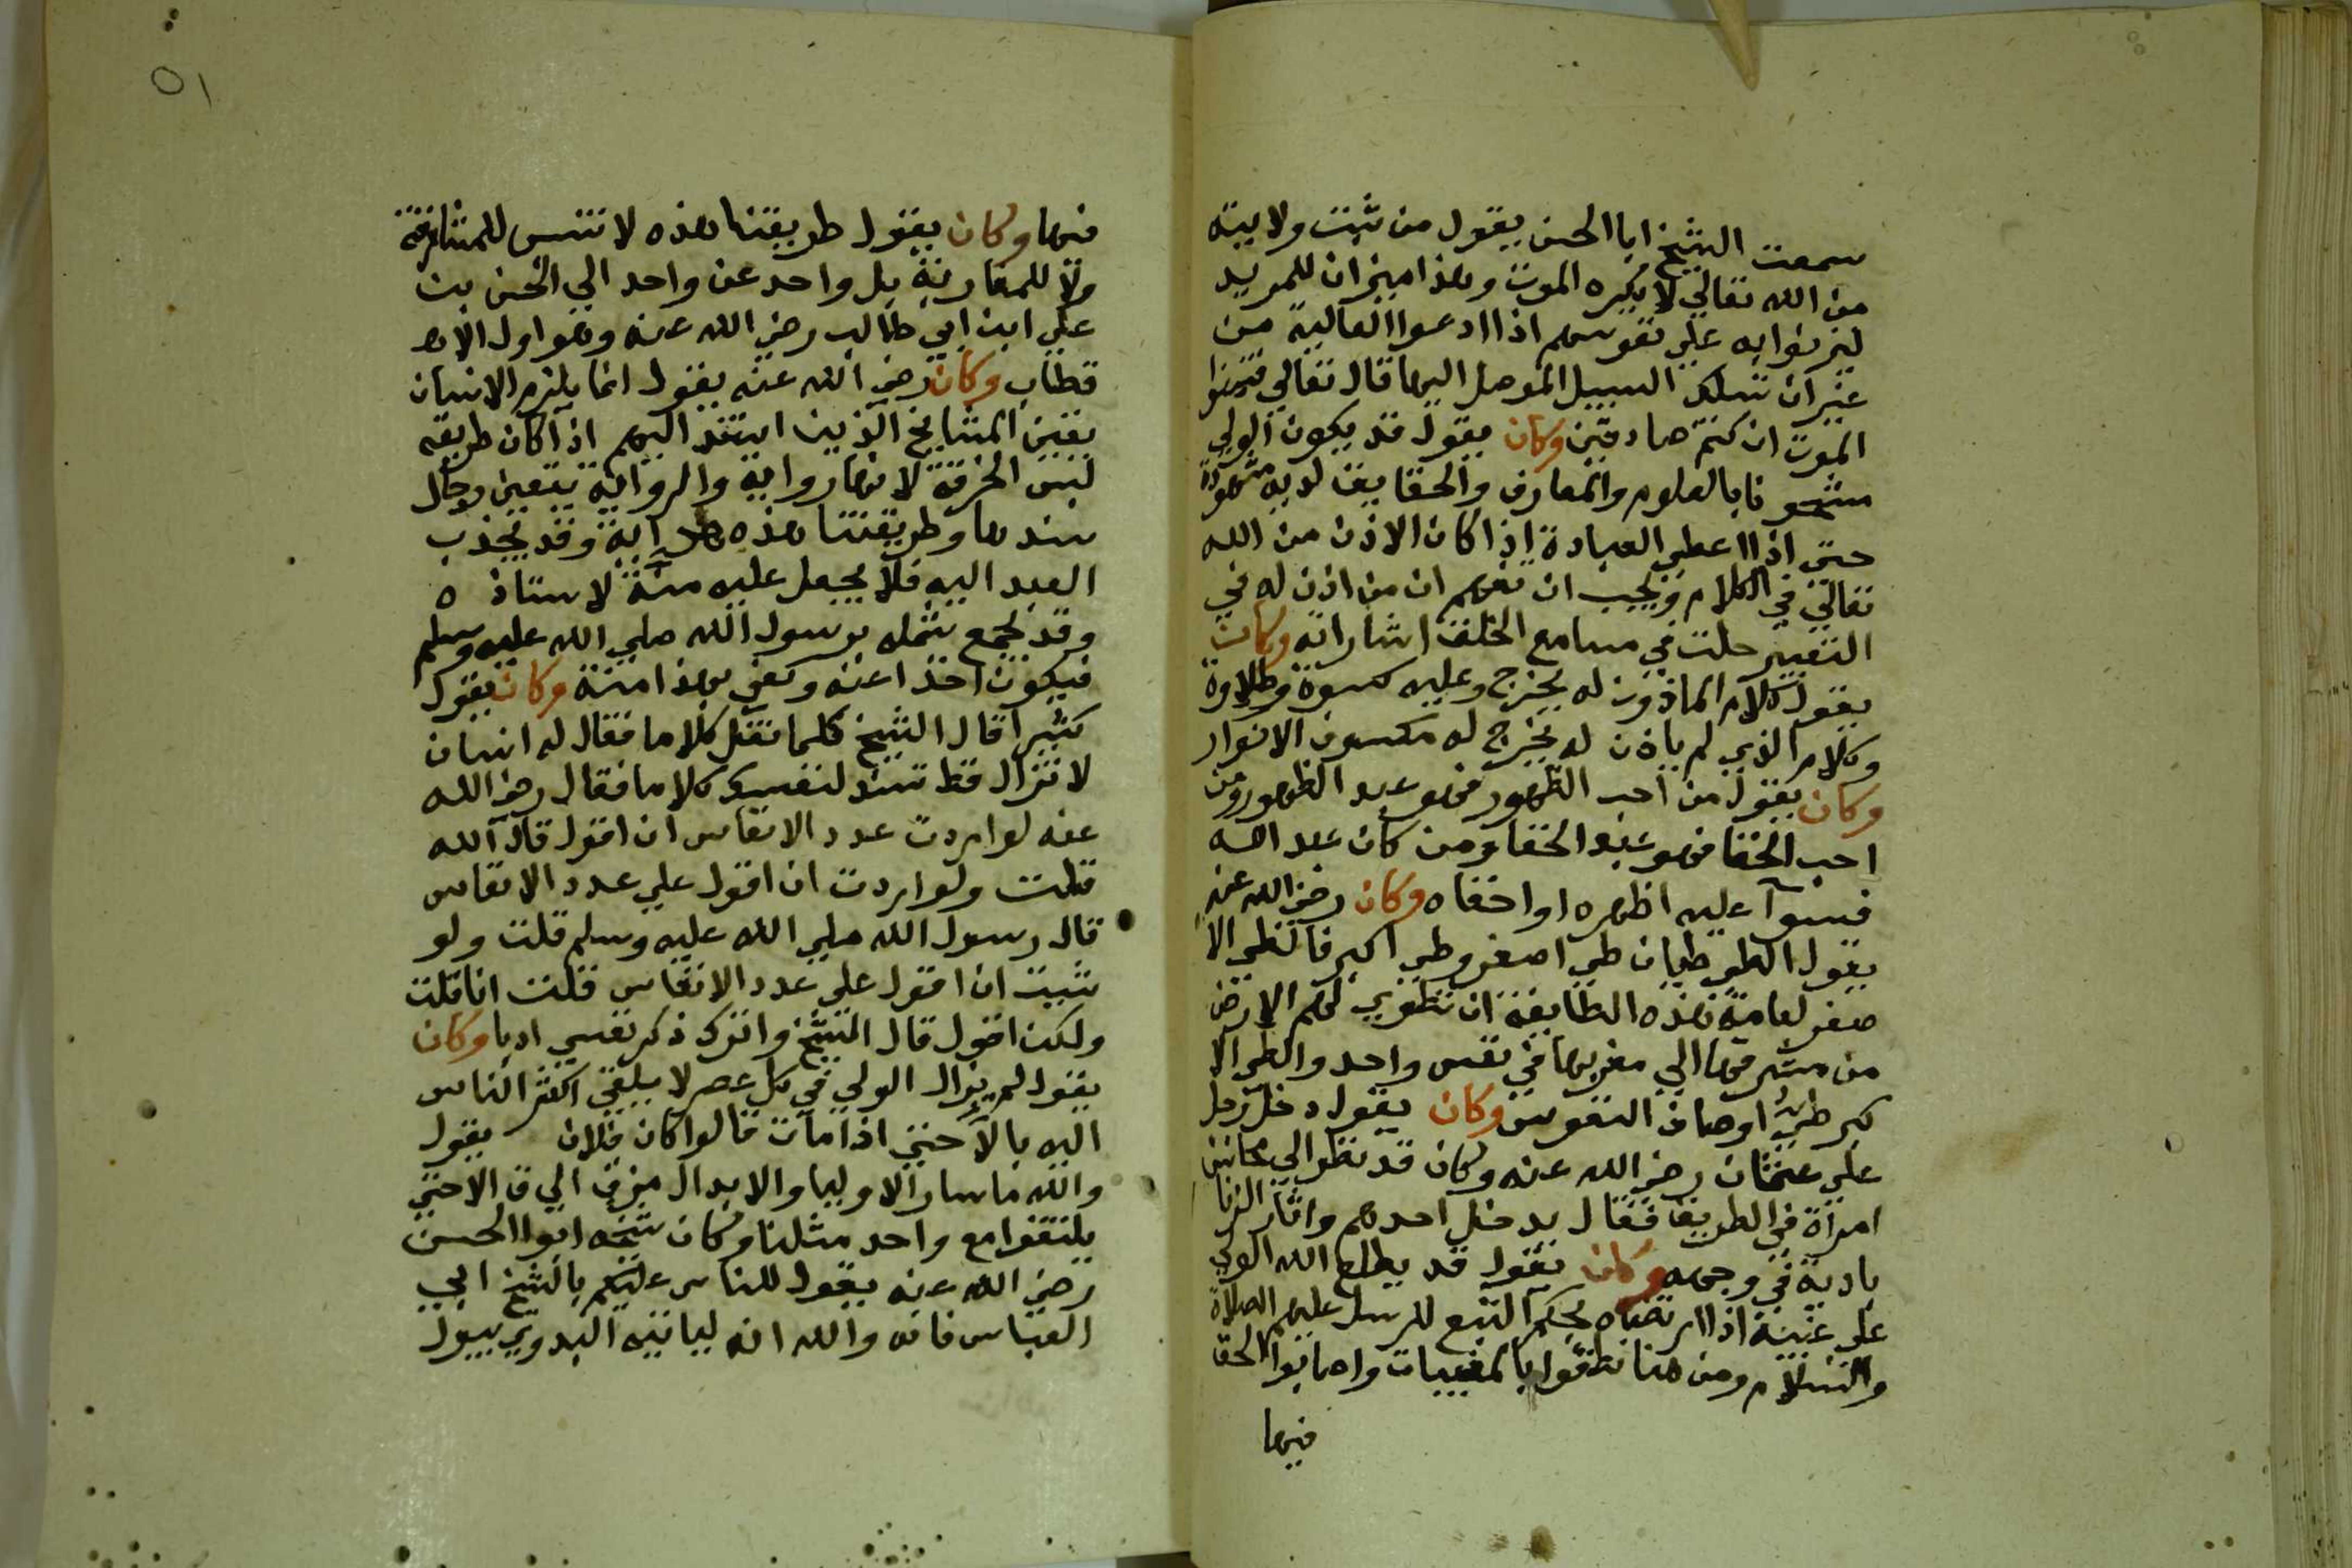 سمعت الشيخ ابا الحسن يقول من ثبتت ولايته
من الله تعالي لا يكره الموت وهذا ميزان للمريد
ليزنوا به علي نفوسهم اذا ادعوا الفالية من
غير ان تسلك السبيل الموصل اليها قال تعالي فتمنوا
الموت ان كنتم صادقين وكان يقول قد يكون الولي
مشحو نا بالعلوم والمعارف والحقايق لديه مشهودة
حتي اذا اعطي العبادة اذا كان الاذن من الله
تعالي في الكلام ويجب ان تفهم ان من اذن له في
التعبير حلت في مسامع الخلق اشاراته وكان
يقول كلام الماذون له يخرج وعليه كسوة وطلاوة
وكلام الذي لم ياذن له يخرج له مكسوف الانوار
وكان يقول من احب الظهور فهو عبد الظهور ومن
احب الخفا فهو عبد الخفا ومن كان عبد الله
فسوآ عليه اظهره او اخفاه وكان رضي الله عنه
يقول الطي طيان طي اصغر وطي اكبر فالطي الا
صغر لعامة هذه الطايفة ان تطوي لهم الارض
من مشرقها الي مغربها في نفس واحد والطي الا
كبر طي اوصاف النفوس وكان يقول دخل رجل
علي عثمان رضي الله عنه وكان قد نظر الي محاسن
امرآة في الطريق فقال يدخل احدهم واثار الزنا
بادية في وجهه وكان يقول قد يطلع الله الولي
علي غيبه اذا ارتضاه بحكم التبع للرسل عليهم الصلاة
والسلام ومن هنا نطقوا بالمغيبات واصابوا الحق
فيها
٥١
فيها وكان يقول طريقتنا هذه لا تنتسب للمشارقة
ولا للمغاربة بل واحد عن واحد الي الحسن بن
علي ابن ابي طالب رضي الله عنه وهو اول الا
قطاب وكان رضي الله عنه يقول انما يلزم الانسان
بقين المشايخ الذين استند اليهم اذا كان طريقه
لبس الخرقة لانها رواية والرواية يتعين رجال
سندها وطريقتنا هذه هداية وقد يجذب
العبد اليه فلا يجعل عليه منة لاستاذ ه
وقد يجمع شمله برسول الله صلي الله عليه وسلم
فيكون اخذا عنه وكفي بهذا منة وكان يقول
كثيرا قال الشيخ كلما نقل كلاما فقال له انسان
لا نزال قط تسند لنفسك كلاما فقال رضي الله
عنه لو اردت عدد الانفاس ان اقول قال الله
قلت ولو اردت ان اقول علي عدد الانفاس
قال رسول الله صلي الله عليه وسلم قلت ولو
شيت ان اقول علي عدد الانفاس قلت انا قلت
ولكن اقول قال الشيخ واترك ذكر نفسي ادبا وكان
يقول لم يزال الولي في كل عصر لا يلقي اكثر الناس
اليه بالا حتي اذا مات قالوا كان فلان يقول
والله ما سار الاوليا والابدال من ق الي ق الا حتي
يلتقوا مع واحد مثلنا وكان شيخه ابوا الحسن
رضي الله عنه يقول للناس عليكم بالشيخ ابي
العباس فانه والله انه لياتيه البدوي يبول